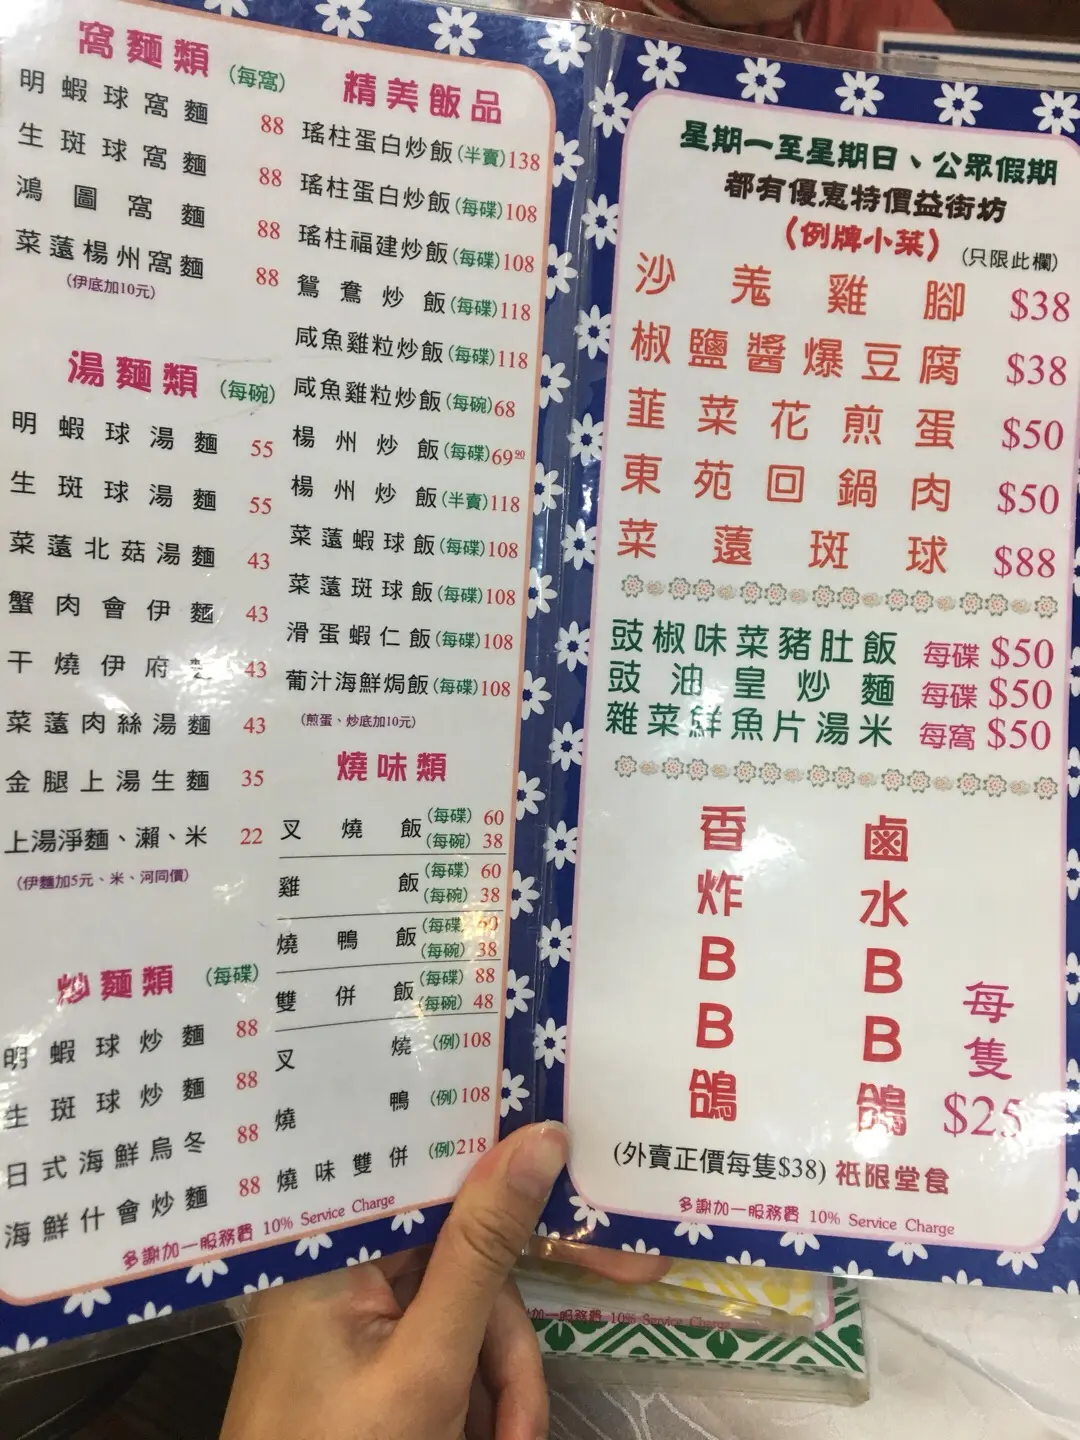 窩麵類 (每窩)
明蝦球窩麵 88
生斑球窩麵 88
鴻圖窩麵 88
菜薳楊州窩麵 88
(伊底加10元)
湯麵類 (每碗)
明蝦球湯麵 55
生斑球湯麵 55
菜薳北菇湯麵 43
蟹肉會伊麵 43
干燒伊府麵 43
菜薳肉絲湯麵 43
金腿上湯生麵 35
上湯淨麵、瀨、米 22
(伊麵加5元、米、河同價)
炒麵類 (每碟)
明蝦球炒麵 88
生斑球炒麵 88
日式海鮮烏冬 88
海鮮什會炒麵 88
精美飯品
瑤柱蛋白炒飯(半賣)138
瑤柱蛋白炒飯(每碟)108
瑤柱福建炒飯(每碟)108
鴛鴦炒飯(每碟)118
咸魚雞粒炒飯(每碟)118
咸魚雞粒炒飯(每碗)68
楊州炒飯(每碟)69.90
楊州炒飯(半賣)118
菜薳蝦球飯(每碟)108
菜薳斑球飯(每碟)108
滑蛋蝦仁飯(每碟)108
葡汁海鮮焗飯(每碟)108
(煎蛋、炒底加10元)
燒味類
叉燒飯(每碟) 60
(每碗) 38
雞飯(每碟) 60
(每碗) 38
燒鴨飯(每碟) 60
(每碗) 38
雙併飯(每碟) 88
(每碗) 48
叉燒(例)108
燒鴨(例)108
燒味雙併(例)218
多謝加一服務費 10% Service Charge
星期一至星期日、公眾假期
都有優惠特價益街坊
(例牌小菜) (只限此欄)
沙羌雞腳 $38
椒鹽醬爆豆腐 $38
韮菜花煎蛋 $50
東苑回鍋肉 $50
菜薳斑球 $88
豉椒味菜豬肚飯 每碟 $50
豉油皇炒麵 每碟 $50
雜菜鮮魚片湯米 每窩 $50
香炸BB鴿
鹵水BB鴿
每隻 $25
(外賣正價每隻$38) 祇限堂食
多謝加一服務費 10% Service Charge
加一服務費 10% Service Charge